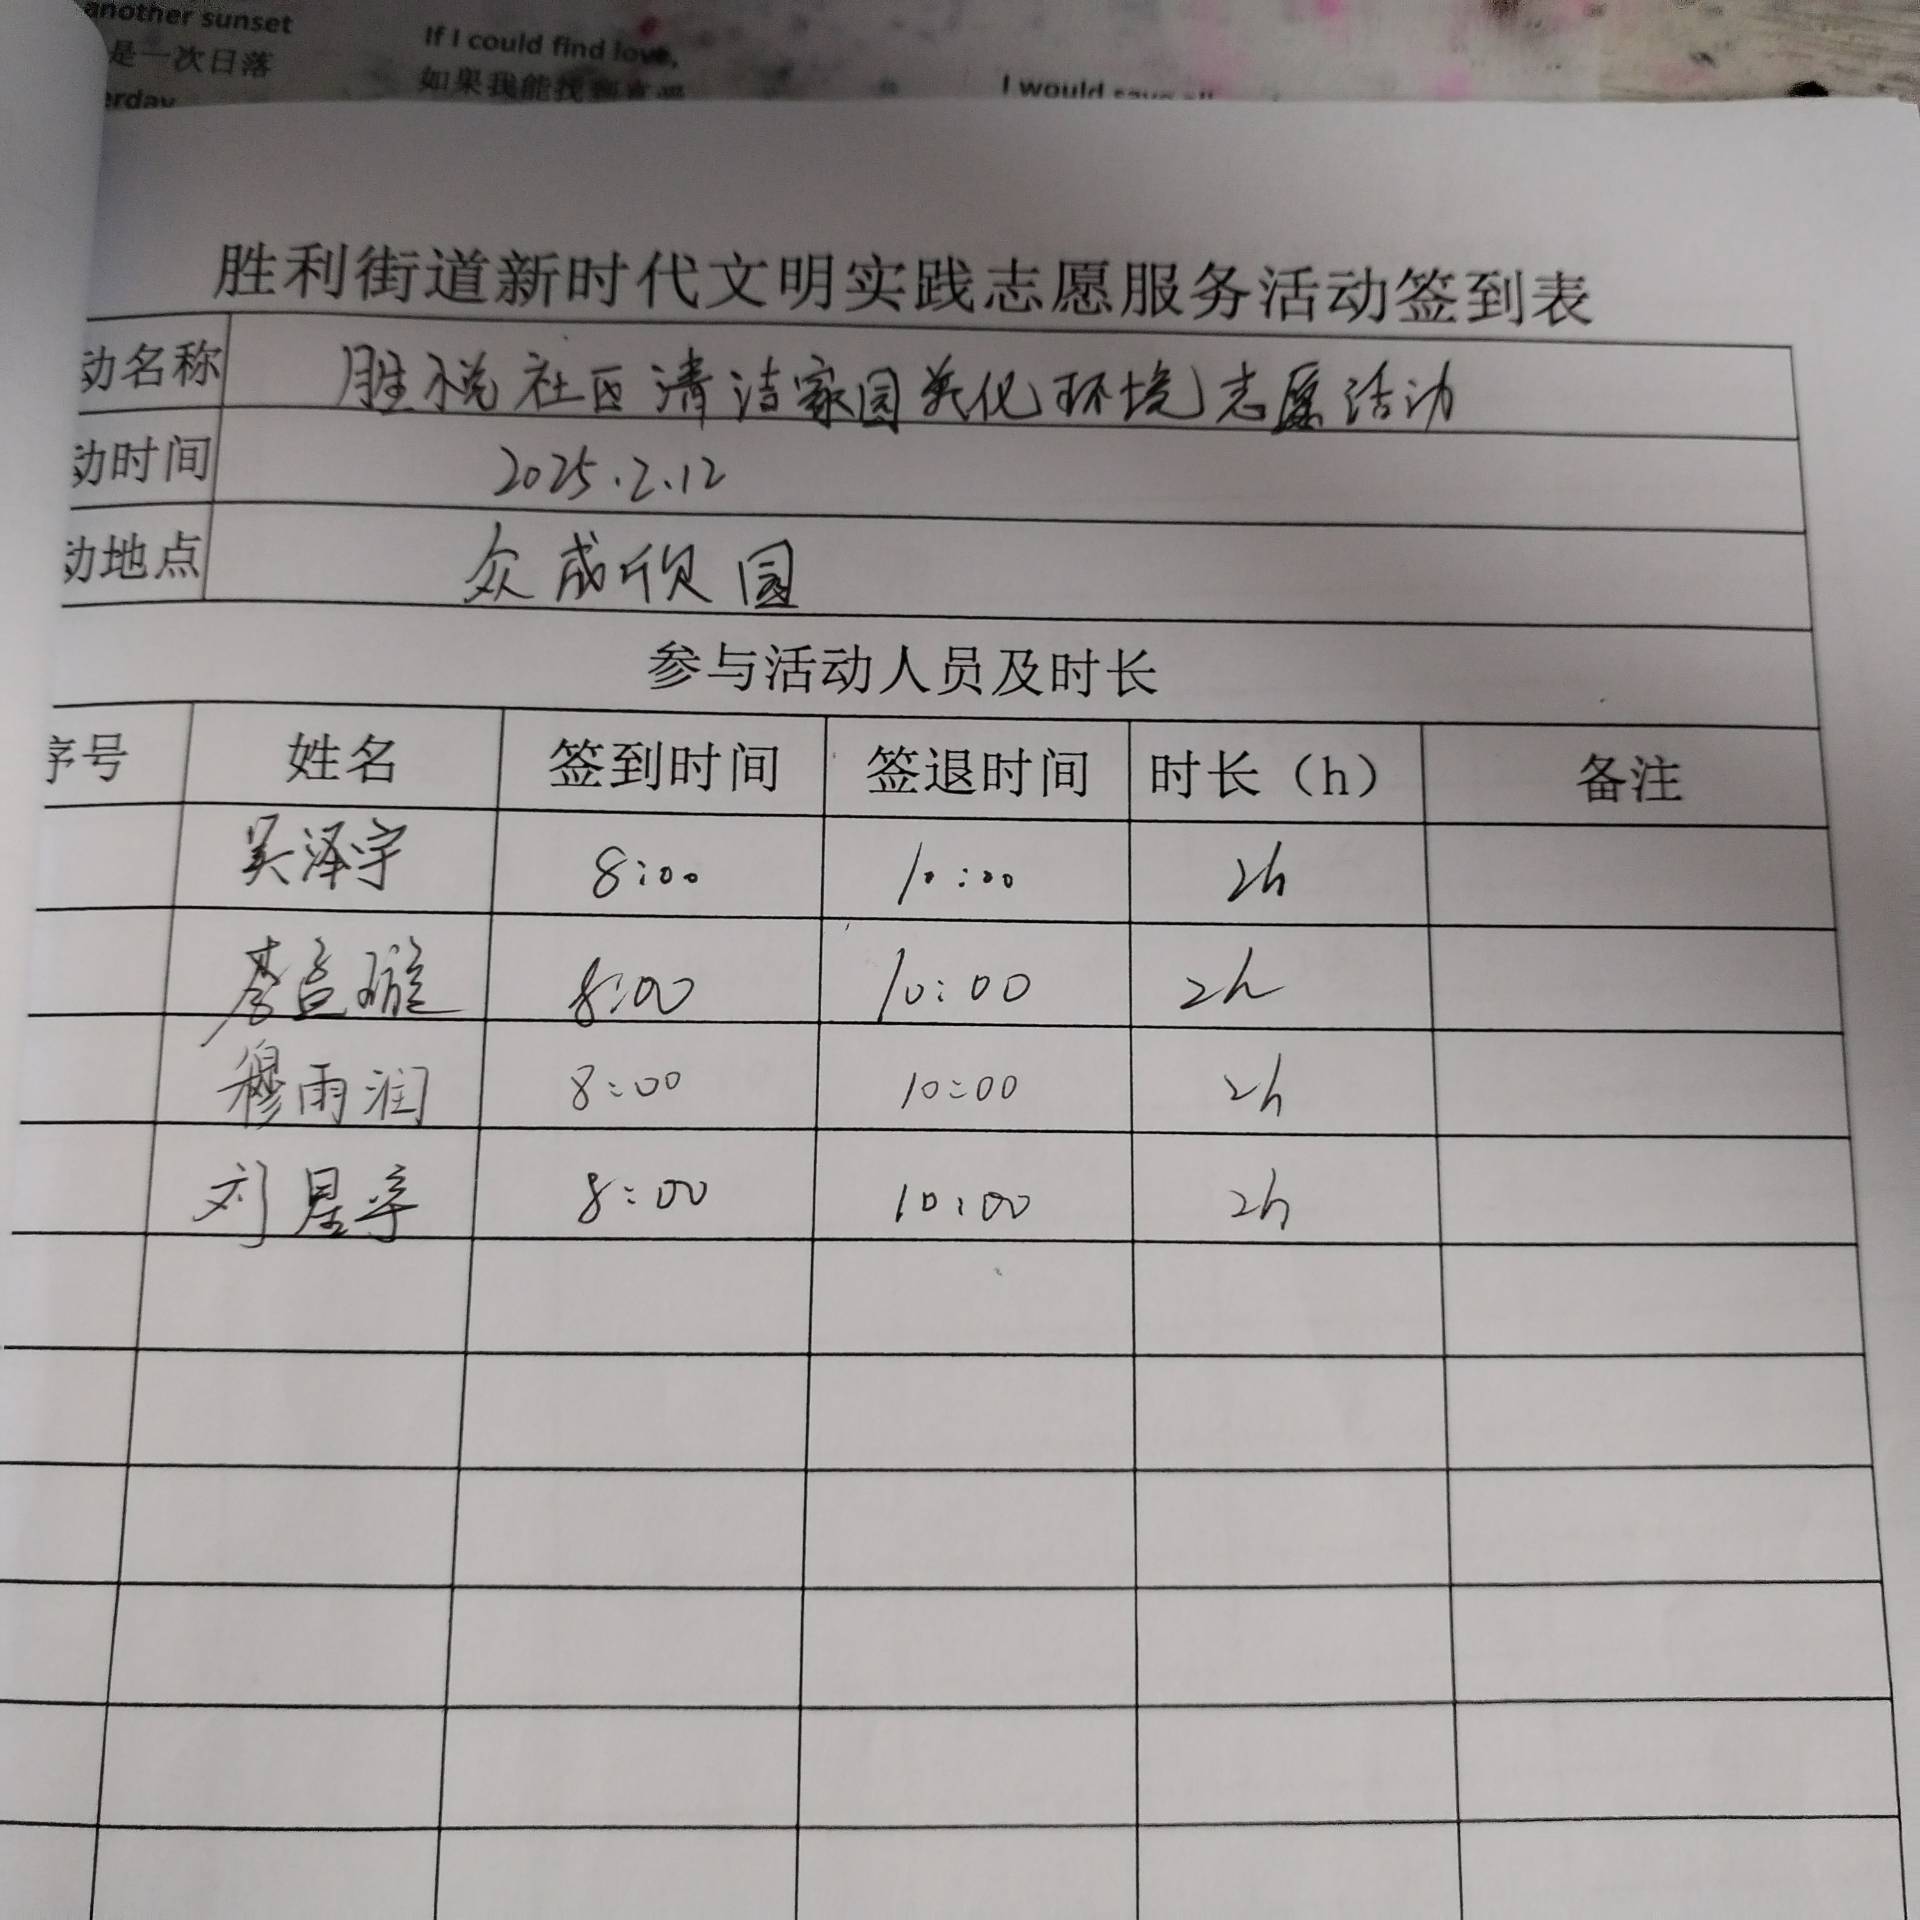 another sunset
是一次日落
erday
If I could find love,
如果我能找到
I would save all
胜利街道新时代文明实践志愿服务活动签到表
动名称 胜悦社区清洁家园美化环境志愿活动
动时间 2025.2.12
动地点 众成欣园
参与活动人员及时长
序号 姓名 签到时间 签退时间 时长（h） 备注
吴泽宇 8:00 10:00 2h
李宣璇 8:00 10:00 2h
穆雨润 8:00 10:00 2h
刘星宇 8:00 10:00 2h